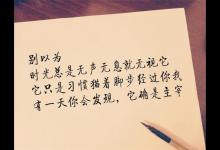 别以为
时光总是无声无息就无视它
它只是习惯猫着脚步经过你我
有一天你会发现，它确是主宰